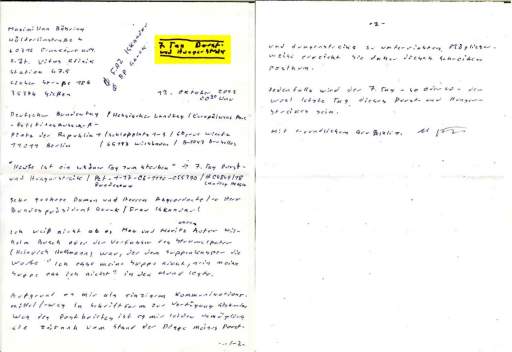 Maximilian Bähring
Hölderlinstraße 4
60316 Frankfurt/M.
z.Zt. Vitos Klinik
Station
Licher Straße 106
35394 Gießen
7. Tag Durst-
und Hungerstreik
13. Oktober
Uhr
Deutscher Bundestag / Hessischer Landtag / Europäisches
- Petitionsausschuß -
Platz der Republik 1 / Schlossplatz 1-3 /
11011 Berlin / 65183 Wiesbaden / Brüssel
"Heute ist ein schöner Tag zum sterben" 7. Tag Durst-
und Hungerstreik /
Bundestag Landtag Hessen
Sehr geehrte Damen und Herren Abgeordnete / Herr
Bundespräsident Gauck / Frau Iskandar!
Ich weiß nicht ob es Max und Moritz Autor Wil-
helm Busch oder der Verfasser des Struwwelpeter
(Heinrich Hoffmann) war, der dem Suppenkasper die
Worte "Ich esse meine Suppe nicht, nein meine
Suppe ess ich nicht" in den Mund legte.
Aufgrund des mir als einzigem Kommunikations-
mittel/-weg in Schriftform zur Verfügung stehenden
Weg des Postbriefes ist es mir leider unmöglich
sie zeitnah vom Stand der Dinge meines Durst-
-2-
- 2 -
und Hungerstreiks zu unterrichten. Möglicher-
weise erreicht Sie daher dieses Schreiben
posthum.
Jedenfalls wird der 7. Tag - so oder so - der
wohl letzte Tag dieses Durst- und Hunger-
streikes sein.
Mit freundlichem